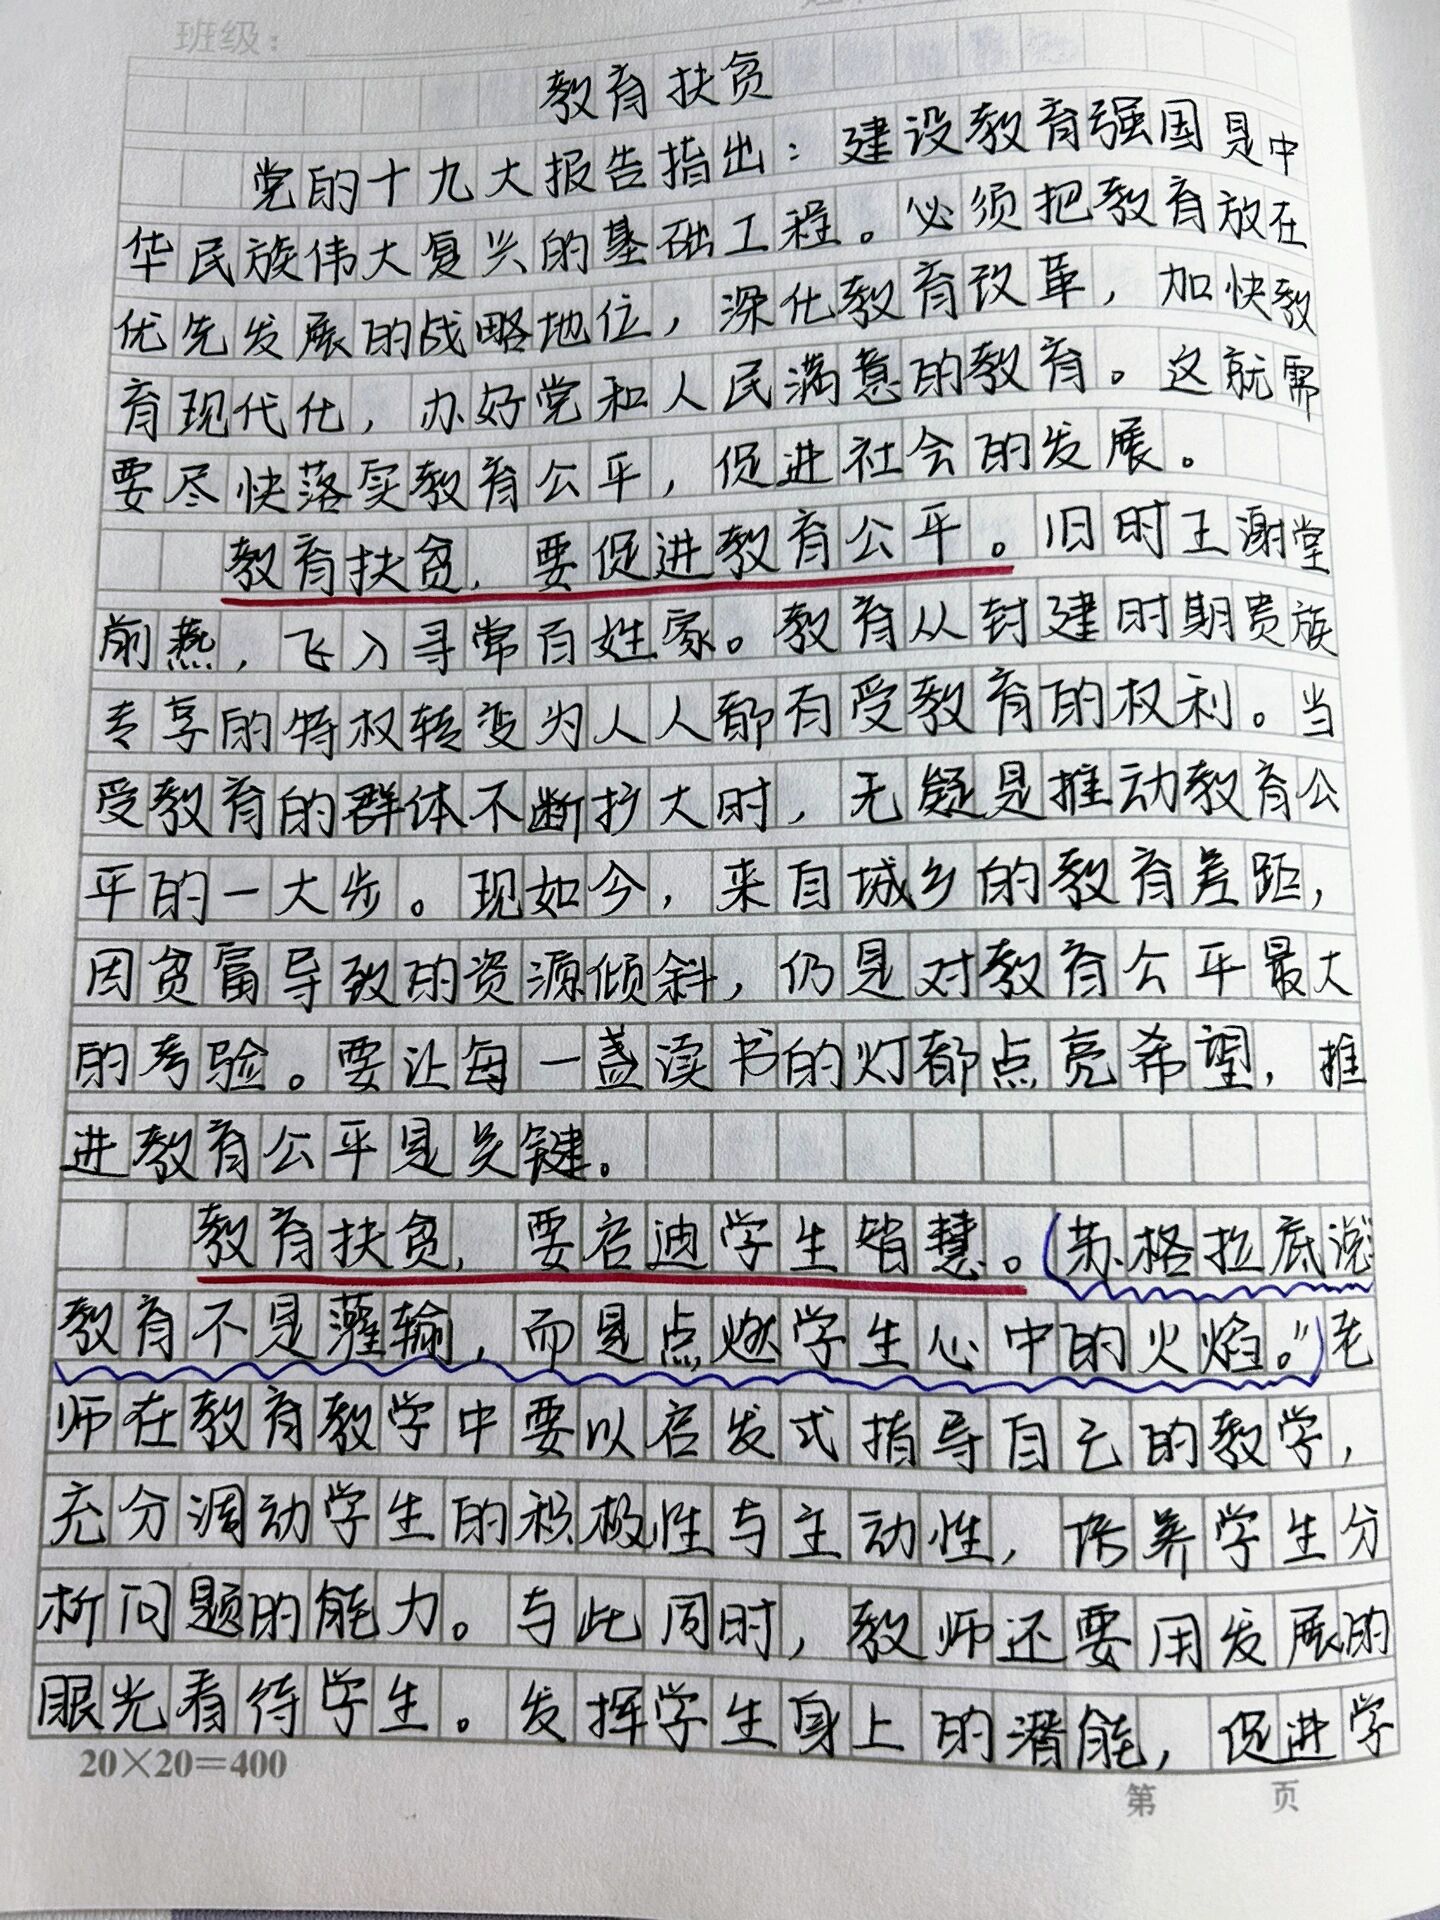 班级：
教育扶贫
党的十九大报告指出：建设教育强国是中
华民族伟大复兴的基础工程。必须把教育放在
优先发展的战略地位，深化教育改革，加快教
育现代化，办好党和人民满意的教育。这就需
要尽快落实教育公平，促进社会的发展。
教育扶贫，要促进教育公平。旧时王谢堂
前燕，飞入寻常百姓家。教育从封建时期贵族
专享的特权转变为人人都有受教育的权利。当
受教育的群体不断扩大时，无疑是推动教育公
平的一大步。现如今，来自城乡的教育差距，
因贫富导致的资源倾斜，仍是对教育公平最大
的考验。要让每一盏读书的灯都点亮希望，推
进教育公平是关键。
教育扶贫，要启迪学生智慧。(苏格拉底说:
教育不是灌输，而是点燃学生心中的火焰。")老
师在教育教学中要以启发式指导自己的教学，
充分调动学生的积极性与主动性，培养学生分
析问题的能力。与此同时，教师还要用发展的
眼光看待学生。发挥学生身上的潜能，促进学
20×20=400
第 页